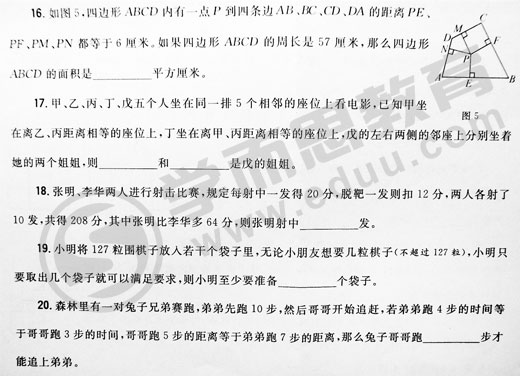 16. 如图5,四边形ABCD内有一点P到四条边AB、BC、CD、DA的距离PE、
PF、PM、PN都等于6厘米。如果四边形ABCD的周长是57厘米,那么四边形
ABCD的面积是________平方厘米。
C
D
M
F
N
P
A
E
B
图5
17. 甲、乙、丙、丁、戊五个人坐在同一排5个相邻的座位上看电影,已知甲坐
在离乙、丙距离相等的座位上,丁坐在离甲、丙距离相等的座位上,戊的左右两侧的邻座上分别坐着
她的两个姐姐,则________和________是戊的姐姐。
18. 张明、李华两人进行射击比赛,规定每射中一发得20分,脱靶一发则扣12分,两人各射了
10发,共得208分,其中张明比李华多64分,则张明射中________发。
19. 小明将127粒围棋子放入若干个袋子里,无论小朋友想要几粒棋子(不超过127粒),小明只
要取出几个袋子就可以满足要求,则小明至少要准备________个袋子。
20. 森林里有一对兔子兄弟赛跑,弟弟先跑10步,然后哥哥开始追赶,若弟弟跑4步的时间等
于哥哥跑3步的时间,哥哥跑5步的距离等于弟弟跑7步的距离,那么兔子哥哥跑________步才
能追上弟弟。
学而思教育
www.eduu.com